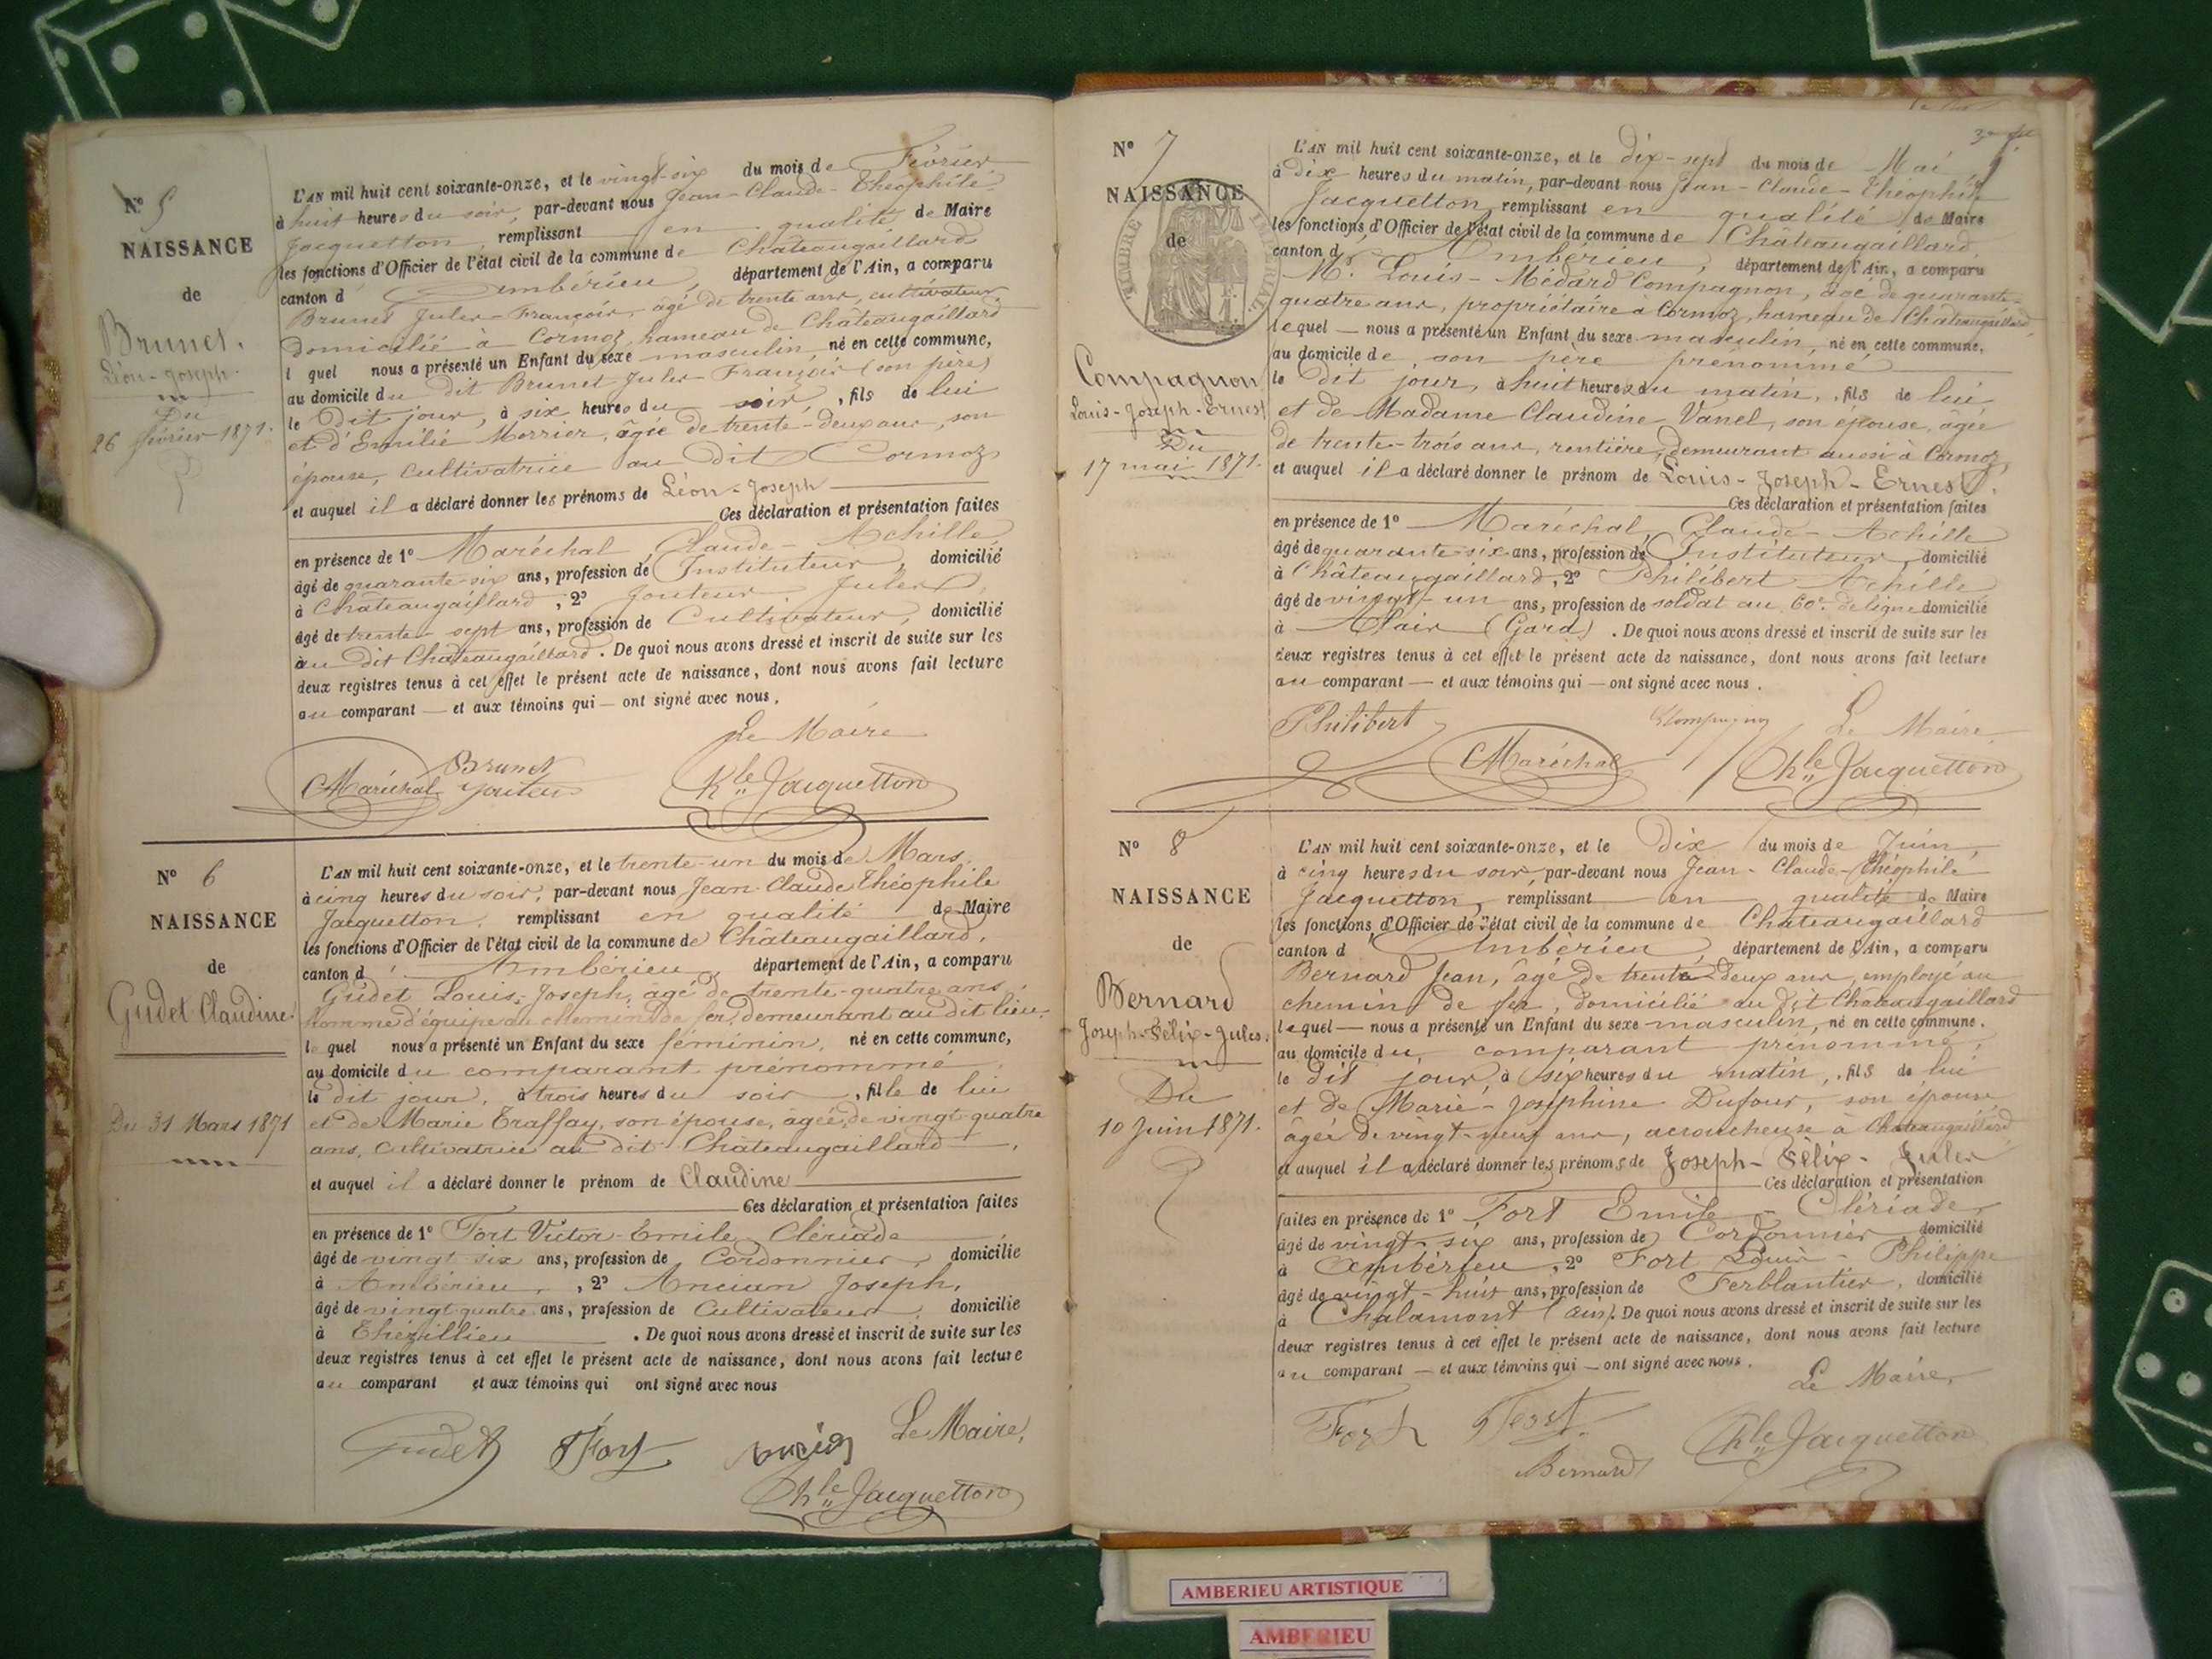 N° 5
NAISSANCE
de
Brunet.
Léon-Joseph.
Du
26 février 1871.
L'AN mil huit cent soixante-onze, et le vingt-six du mois de Février
à huit heures du soir, par-devant nous Jean-Claude-Théophile
Jacquetton, remplissant en qualité de Maire
les fonctions d'Officier de l'état civil de la commune de Châteaugaillard
canton d'Ambérieu, département de l'Ain, a comparu
Brunet Jules-François, âgé de trente ans, cultivateur
domicilié à Cormoz, hameau de Châteaugaillard
l quel nous a présenté un Enfant du sexe masculin, né en cette commune,
au domicile du dit Brunet Jules-François (son père)
le dit jour, à six heures du soir, fils de lui
et d'Emilie Morrier, âgée de trente-deux ans, son
épouse, cultivatrice au dit Cormoz
et auquel il a déclaré donner les prénoms de Léon-Joseph
Ces déclaration et présentation faites
en présence de 1° Maréchal, Claude-Achille,
âgé de quarante-six ans, profession de Instituteur, domicilié
à Châteaugaillard, 2° Jouteur Jules,
âgé de trente-sept ans, profession de Cultivateur, domicilié
au dit Châteaugaillard. De quoi nous avons dressé et inscrit de suite sur les
deux registres tenus à cet effet le présent acte de naissance, dont nous avons fait lecture
au comparant — et aux témoins qui — ont signé avec nous.
Le Maire
Brunet
CMaréchal Jouteur Jacquetton
N° 6
NAISSANCE
de
Gudet Claudine.
Du 31 Mars 1871
L'AN mil huit cent soixante-onze, et le trente-un du mois de Mars,
à cinq heures du soir, par-devant nous Jean Claude Théophile
Jacquetton, remplissant en qualité de Maire
les fonctions d'Officier de l'état civil de la commune de Châteaugaillard,
canton d'Ambérieu, département de l'Ain, a comparu
Gudet Louis-Joseph, âgé de trente-quatre ans,
homme d'équipe au chemin de fer, demeurant au dit lieu,
le quel nous a présenté un Enfant du sexe féminin, né en cette commune,
au domicile du comparant prénommé
le dit jour, à trois heures du soir, fille de lui
et de Marie Traffay, son épouse, âgée de vingt-quatre
ans, cultivatrice au dit Châteaugaillard,
et auquel il a déclaré donner le prénom de Claudine
Ces déclaration et présentation faites
en présence de 1° Fort Victor-Emile Clériade
âgé de vingt-six ans, profession de Cordonnier, domicilié
à Ambérieu, 2° Ancian Joseph,
âgé de vingt-quatre ans, profession de Cultivateur, domicilié
à Thézillieu. De quoi nous avons dressé et inscrit de suite sur les
deux registres tenus à cet effet le présent acte de naissance, dont nous avons fait lecture
au comparant et aux témoins qui ont signé avec nous
Le Maire,
Gudet Fort Ancian
Jacquetton
N° 7
NAISSANCE
de
TIMBRE IMPÉRIAL
Compagnon
Louis-Joseph-Ernest
Du
17 mai 1871.
L'AN mil huit cent soixante-onze, et le dix-sept du mois de Mai
à dix heures du matin, par-devant nous Jean-Claude-Théophile
Jacquetton, remplissant en qualité de Maire
les fonctions d'Officier de l'état civil de la commune de Châteaugaillard,
canton d'Ambérieu, département de l'Ain, a comparu
Mr. Louis-Médard Compagnon, âgé de quarante-
quatre ans, propriétaire à Cormoz, hameau de Châteaugaillard,
lequel — nous a présenté un Enfant du sexe masculin, né en cette commune,
au domicile de son père prénommé
le dit jour, à huit heures du matin, fils de lui
et de Madame Claudine Vanel, son épouse, âgée
de trente-trois ans, rentière, demeurant aussi à Cormoz,
et auquel il a déclaré donner le prénom de Louis-Joseph-Ernest.
Ces déclaration et présentation faites
en présence de 1° Maréchal, Claude-Achille
âgé de quarante-six ans, profession de Instituteur, domicilié
à Châteaugaillard, 2° Philibert Achille
âgé de vingt-un ans, profession de soldat au 60e de ligne domicilié
à Alais (Gard). De quoi nous avons dressé et inscrit de suite sur les
deux registres tenus à cet effet le présent acte de naissance, dont nous avons fait lecture
au comparant — et aux témoins qui — ont signé avec nous.
Philibert Compagnon Le Maire,
CMaréchal Jacquetton
N° 8
NAISSANCE
de
Bernard
Joseph-Félix-Jules.
Du
10 Juin 1871.
L'AN mil huit cent soixante-onze, et le Dix du mois de Juin,
à cinq heures du soir, par-devant nous Jean-Claude-Théophile
Jacquetton, remplissant en qualité de Maire
les fonctions d'Officier de l'état civil de la commune de Châteaugaillard
canton d'Ambérieu, département de l'Ain, a comparu
Bernard Jean, âgé de trente-deux ans, employé au
chemin de fer, domicilié au dit Châteaugaillard
lequel — nous a présenté un Enfant du sexe masculin, né en cette commune.
au domicile du comparant prénommé,
le dit jour, à six heures du matin, fils de lui
et de Marie-Joséphine Dufour, son épouse
âgée de vingt-neuf ans, accoucheuse à Châteaugaillard
et auquel il a déclaré donner les prénoms de Joseph-Félix-Jules
Ces déclaration et présentation
faites en présence de 1° Fort Emile-Clériade,
âgé de vingt-six ans, profession de Cordonnier, domicilié
à Ambérieu, 2° Fort Louis-Philippe
âgé de vingt-huit ans, profession de Ferblantier, domicilié
à Chalamont (Ain). De quoi nous avons dressé et inscrit de suite sur les
deux registres tenus à cet effet le présent acte de naissance, dont nous avons fait lecture
au comparant — et aux témoins qui — ont signé avec nous.
Le Maire,
Fort Fort
Bernard Jacquetton
AMBERIEU ARTISTIQUE
AMBERIEU